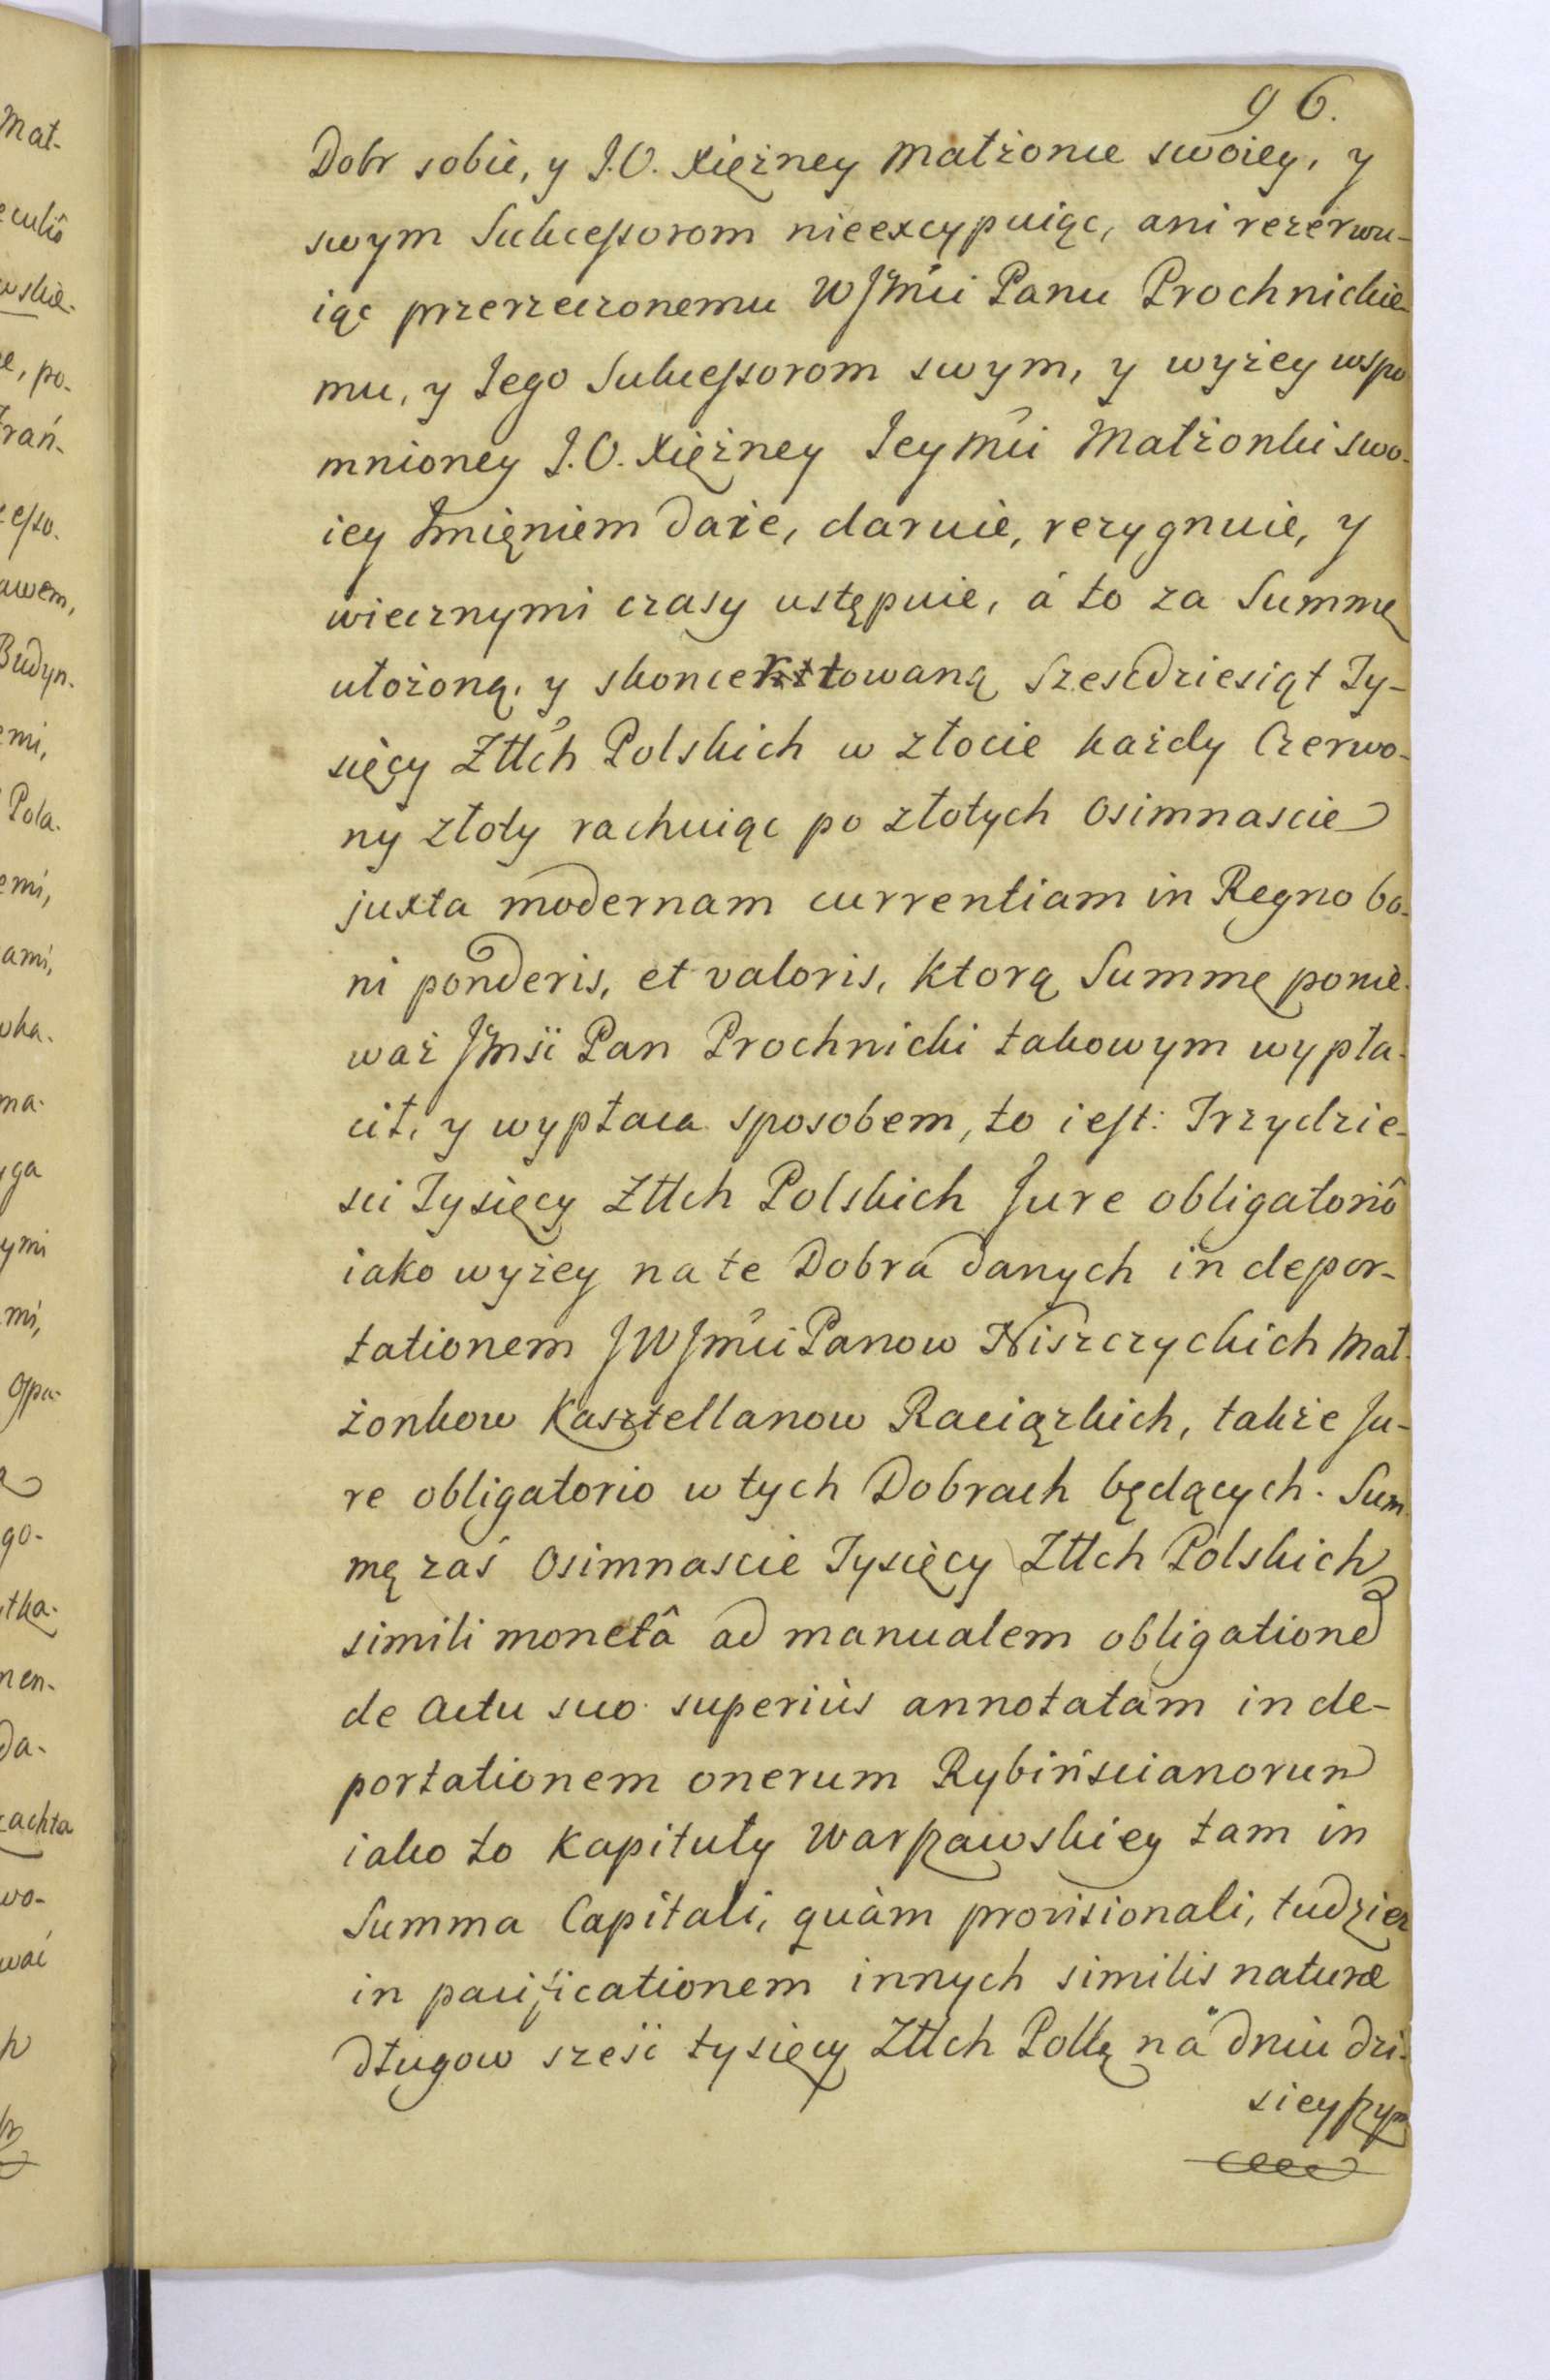 96.
Dobr sobie, y J.O. Xiężney Małżonce swoiey, y
swym Sukcessorom nieexcypuiąc, ani rezerwu-
iąc przerzeczonemu WJmći Panu Prochnickie-
mu, y Jego Sukcessorom swym, y wyżey wspo
mnioney J.O. Xiężney Jeymći Małżonki swo-
iey Jmięniem daie, daruie, rezygnuie, y
wiecznymi czasy ustępuie, á to za Summę
ułożoną, y skoncertowaną Szescdziesiąt Ty-
sięcy Zttch Polskich w złocie każdy Czerwo-
ny złoty rachuiąc po złotych Osimnascie
juxta modernam currentiam in Regno bo-
ni ponderis, et valoris, ktorą Summę ponie-
waż Jmśi Pan Prochnicki takowym wypła-
cił, y wypłaca sposobem, to iest: Trzydzie-
sci Tysięcy Zttch Polskich Jure obligatoriô
iako wyżey na te Dobra danych in depor-
tationem JWJmći Panow Niszczyckich Mał-
żonkow Kasztellanow Raciązkich, także Ju-
re obligatorio w tych Dobrach będących. Sum-
mę zaś Osimnascie Tysięcy Zttch Polskich
simili monetâ ad manualem obligatione
de Actu suo superiùs annotatam in de-
portationem onerum Rybińscianorum
iako to Kapituły Warszawskiey tam in
Summa Capitali, quàm provisionali, tudziez
in pacificationem innych similis naturæ
długow sześć tysięcy Zttch Polkę ná dniu dzi-
sieyszym
Mat-
eculiô
e, po-
awem,
Budyn-
emi,
Pola-
emi,
ami,
ma-
ymi
mi,
go-
tka-
men-
da-
zachta
wo-
wać